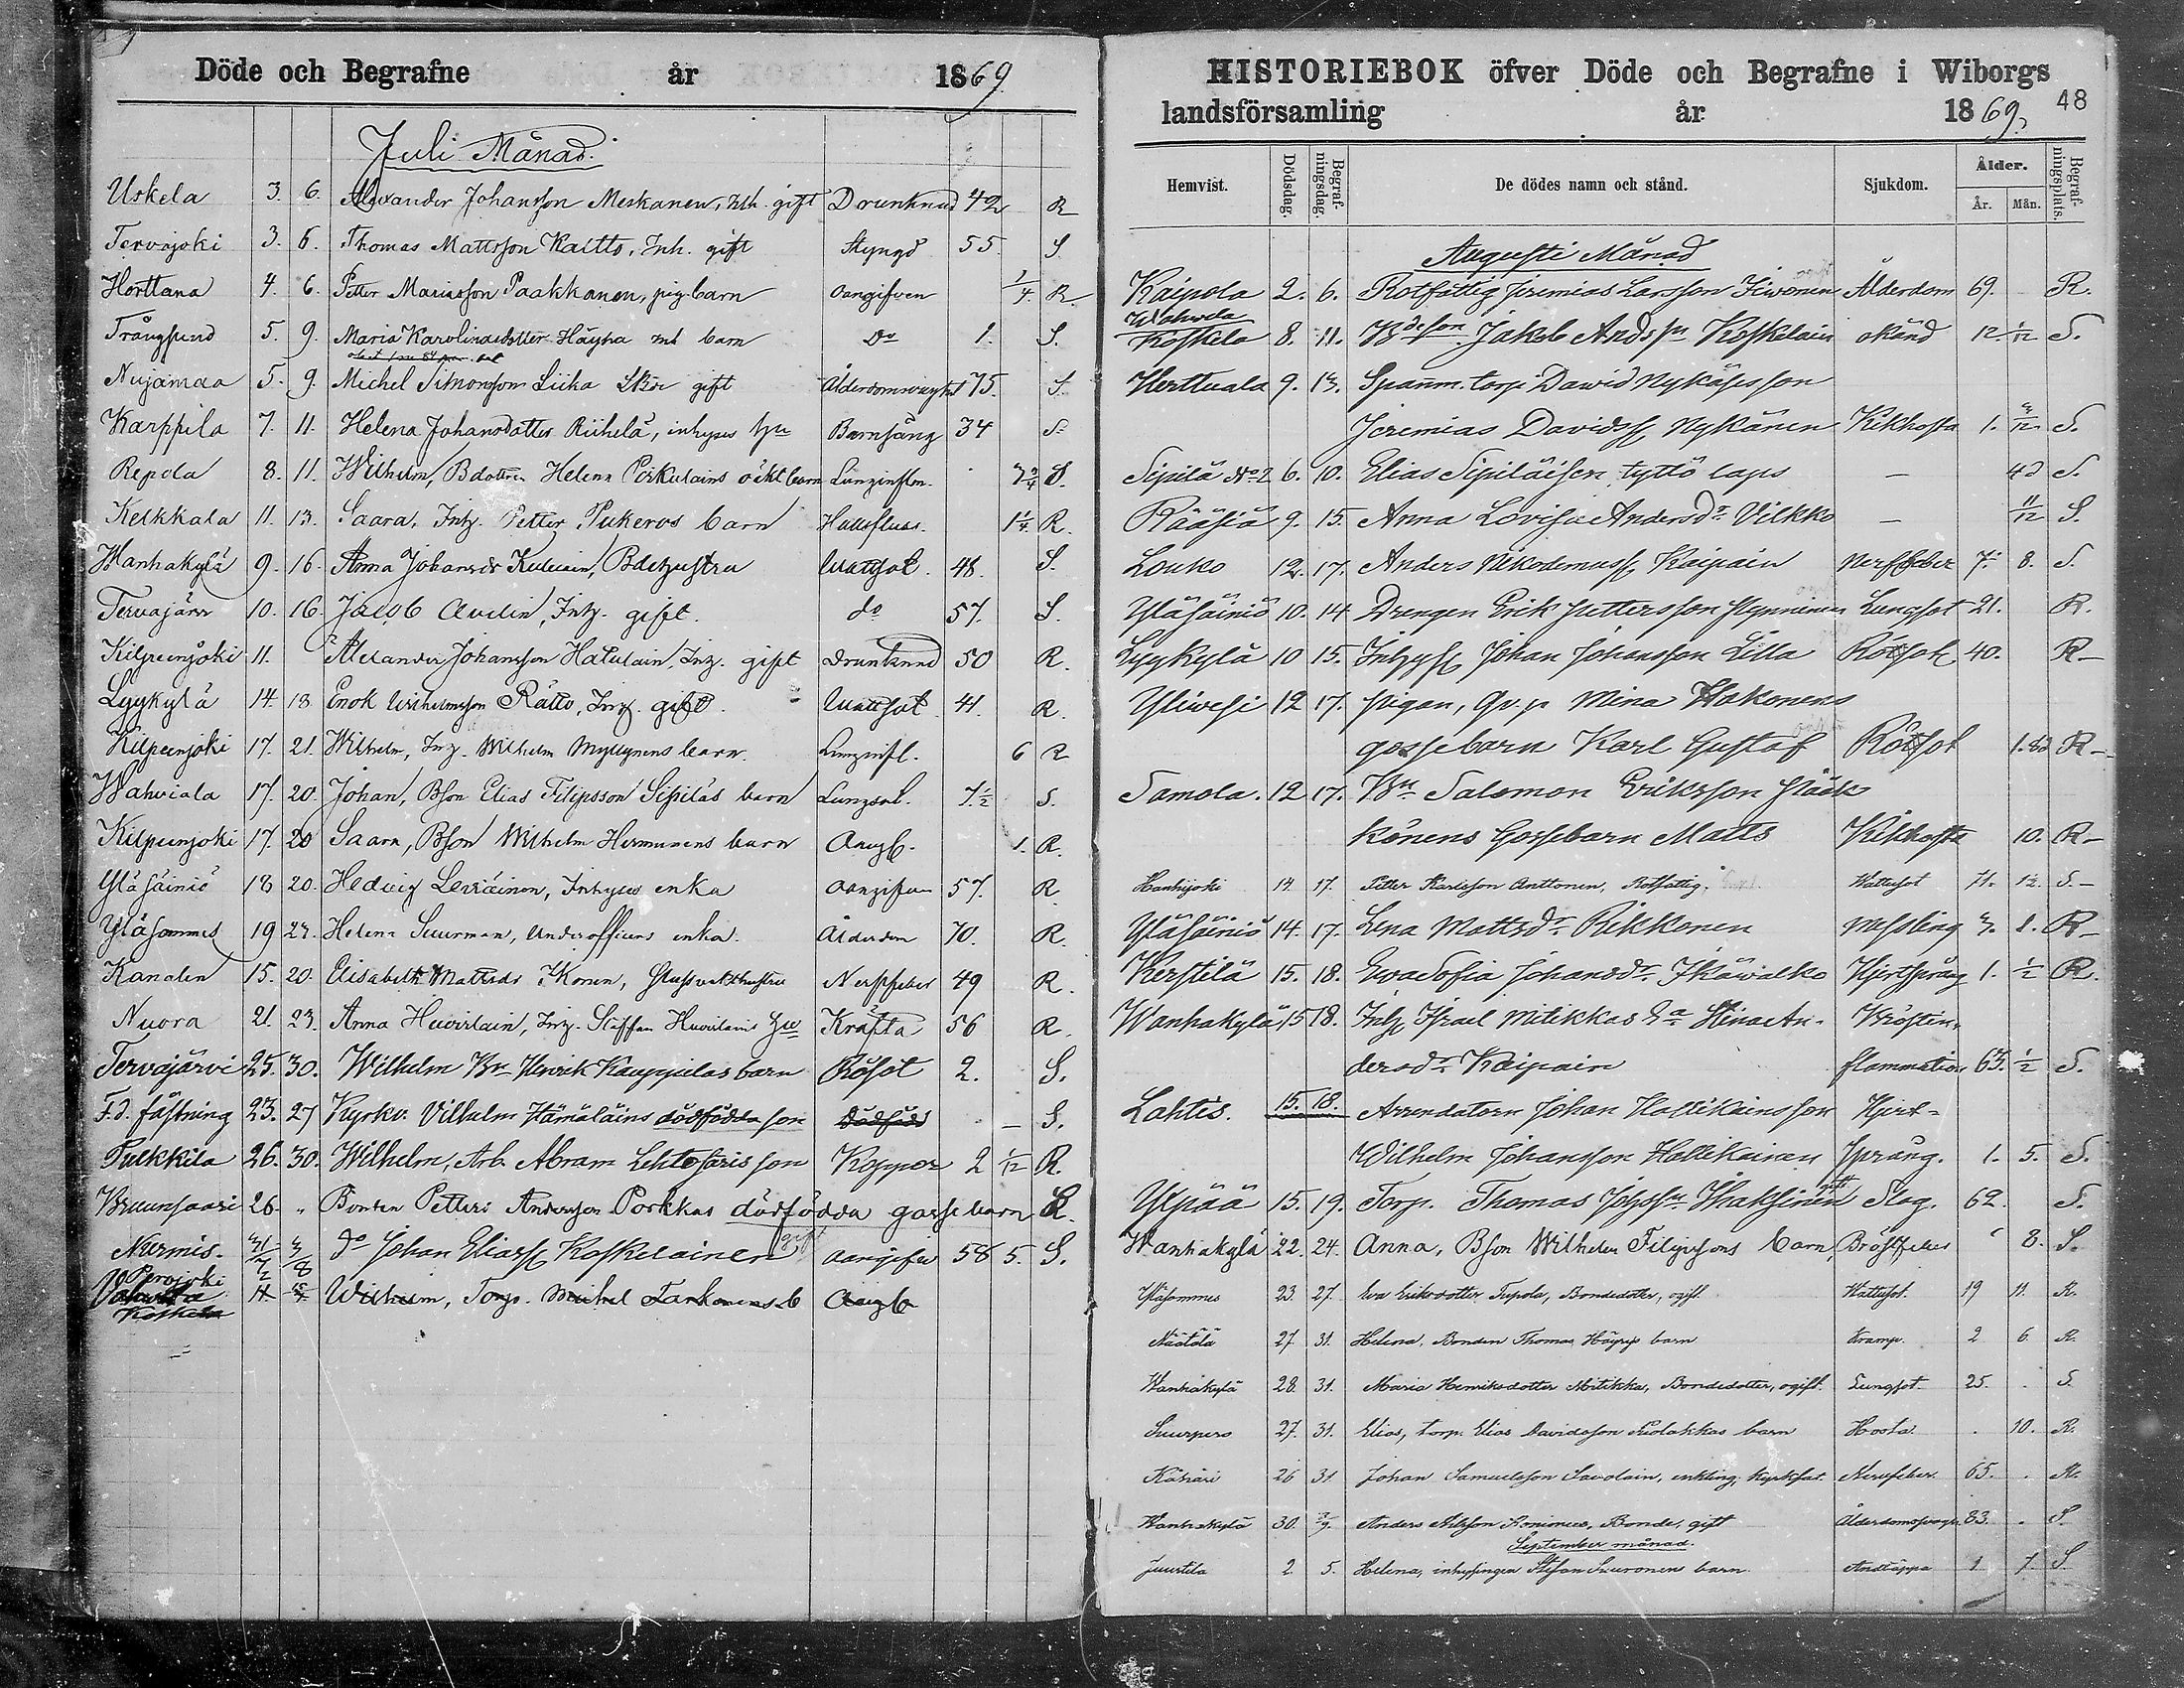 Döde och Begrafne år 1869.
Juli Månad.
Uskela 3. 6. Alexander Johansson Meskanen, Inh. gift Drunknad 42 R
Tervajoki 3. 6. Thomas Mattsson Kaitto, Inh. gift Styngd 55. S
Horttana 4. 6. Petter Mariasson Paakkanen, pig. barn Oangifven 1/4. R
Trångsund 5. 9. Maria Karolinasdotter Häyhä inh barn Do 1. S.
Nujamaa 5. 9. Michel Simonsson Liika gift Ålderdomsvaghet 75. S.
Karppila 7. 11. Helena Johansdotter Riihelä, inhyses hu Barnsäng 34 S.
Repola 8. 11. Wilhelm, Bdottren Helena oäkt barn Lunginflm. S.
Kelkkala 11. 13. Saara, Inh. Petter Pukeros barn Halsfluss. 1 1/4. R.
Wanhakylä 9. 16. Anna Johansdr Kuluain, Bdehustru Wattsot. 48. S.
Tervajärvi 10. 16. Jacob Audin, Inh. gift. do 57. S.
Kilpeenjoki 11. Alexander Johansson Hatulain, Inh. gift Drunknad 50 R.
Lyykylä 14. 18 Enok Wilhelmsson Rätto, Inh. gift. Wattsot 41. R.
Kilpeenjoki 17. 21. Wilhelm, Inh. Wilhelm Myllynens barn. Lunginfl. 6 R
Wahviala 17. 20. Johan, Bson Elias Filipsson Sipiläs barn Lungsot. 7 1/2 S.
Kilpeenjoki 17. 20 Saara, Bson Wilhelm Hermunens barn Angb. 1. R.
Yläsäiniö 18 20. Hedvig Leväinen, Inhyses enka Oangifven 57. R.
Yläsommes 19 23. Helena Suurman, Underofficers enka. Ålderdom 70. R.
Kanalen 15. 20. Elisabeth Mattsdr Ikonen, Slussvakt hustru Nerffeber 49 R.
Nuora 21. 23. Anna Huvilain, Inh. Staffan Huvilains hu Kräfta 56 R.
Tervajärvi 25. 30. Wilhelm Bn Henrik Kauppilas barn Rösot 2. S.
F.d. fästning 23. 27 Kyrkv. Vilhelm Hämäläins dödfödda son Dödfödd - S.
Pulkkila 26. 30. Wilhelm, Arb. Abram Lehtosaris son Koppor 2 1/12 R.
Bruunsaari 26. " Bonden Petters Andersson Porkkas dödfödda gossebarn R.
Nurmis. 31/7 3/8 do Johan Eliass. Koskelainen gift oangifven 58 5. S.
Perojoki
Vahvila 11. 15. Wilhelm, Torp. Michel Tarkonens b Angb
Koskela
HISTORIEBOK öfver Döde och Begrafne i Wiborgs
landsförsamling år 1869. 48
Hemvist. Dödsdag. Begrafningsdag. De dödes namn och stånd. Sjukdom. Ålder. År. Mån. Begrafningsplats.
Augusti Månad
Kaipola 2. 6. Rotfattig Jeremias Larsson Kiwonen Ålderdom 69. R.
Wahvela
Koskela 8. 11. Bdeson Jakob Andssn Koskelain okänd 12. 1/12 S.
Herttuala 9. 13. Spanm. torp. Dawid Nykäsesson
Jeremias Davidss. Nykänen Kikhosta 1. 3/12 S.
Sipilä No 2 6. 10. Elias Sipiläisen tyttö laps — 4d S.
Rääsiä 9. 15. Anna Lovisa Andersdr Vilkko — 11/12 S.
Louko 12. 17. Anders Nikodemuss. Kaipain Nerffeber 7. 8. S.
Yläsäiniö 10. 14 Drengen Erik Pettersson Hynninen Lungsot 21. R.
Lyykylä 10 15. Inhys. Johan Johansson Lilla Rötsot 40. R—
Yliwesi 12 17. pigan, Qv.p Mina Hakonens
gossebarn Karl Gustaf Rötsot R—
Samola. 12 17. Bn Salomon Eriksson Pääk
könens Gossebarn Matts Kikhosta 10. R—
Hanhijoki 14 17. Petter Karlsson Anttonen, Rotfattig. Wattusot 71. 12. S.—
Yläsäiniö 14. 17. Lena Mattsdr Pikkonen Messling 3. 1. R—
Kerstilä 15. 18. Ewa Sofia Johansdr Ikäwalko Hjertsprång 1. 1/2 R.
Wanhakylä 15 18. Inhs Israel Mitikkas Ea Stina An- Bröstin-
dersdr Kaipain flammation 63. 1/2 S.
Lahtis. 15. 18. Arrendatorn Johan Hallikainsson Hjert-
Wilhelm Johansson Hallikainen språng. 1. 5. S.
Ylpää 15. 19. Torp. Thomas gift Slag. 62. S.
Wanhakylä 22. 24. Anna, Bson Wilhelm Filipssons barn, Bröstfeber " 8. S.
Yläsommes 23. 27. Eva Eriksdotter Tupola, Bondedotter, ogift. Wattusot. 19 11. R.
Näätälä 27. 31. Helena, Bonden Thomas Häyrys barn Kramp. 2 6. R.
Wanhakylä 28. 31. Maria Henriksdotter Mitikka, Bondedotter, ogift. Lungsot. 25. . S.
Suurpero 27. 31. Elias, torp. Elias Davidsson Puolakkas barn Hosta . 10. R.
Kähäri 26 31 Johan Samuelsson Savolain, enkling, Nervfeber. 65. . R.
Wanhakylä 30. 3/9. Anders Nilsson Bonde, gift Ålderdomssvagh. 83. . S.
September månad.
Juustila 2 5. Helena, inhysingen Stefan Suuronens barn Andtäppa 1 7. S.